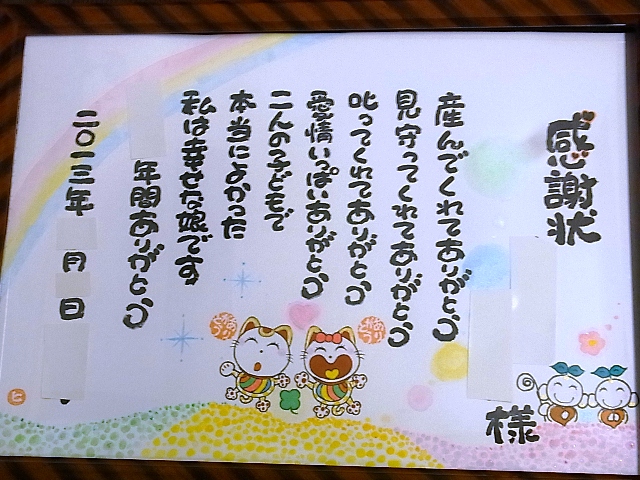 感謝状
様
産んでくれてありがとう
見守ってくれてありがとう
叱ってくれてありがとう
愛情いっぱいありがとう
二人の子どもで
本当によかった
私は幸せな娘です
年間ありがとう
二〇一三年 月 日
ありがとう
ありがとう